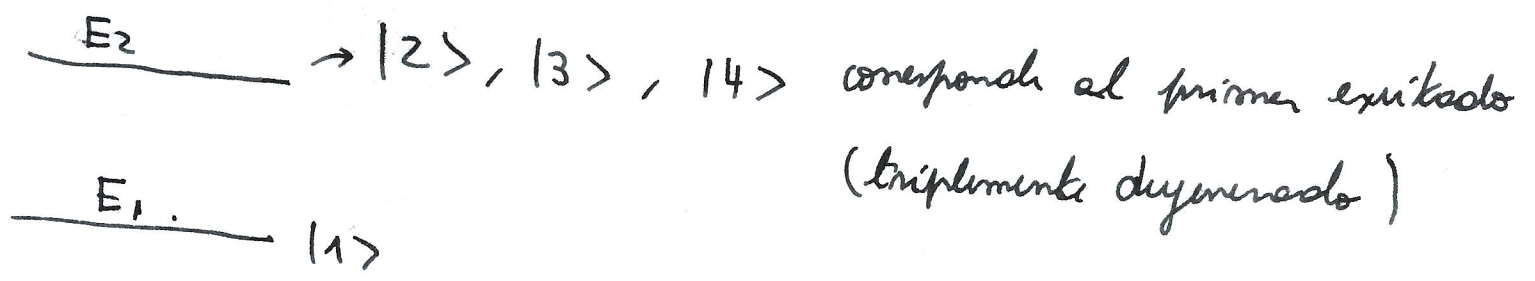 E2 → |2>, |3>, |4> corresponde al primer exitado
(triplemente degenerado)
E1. |1>